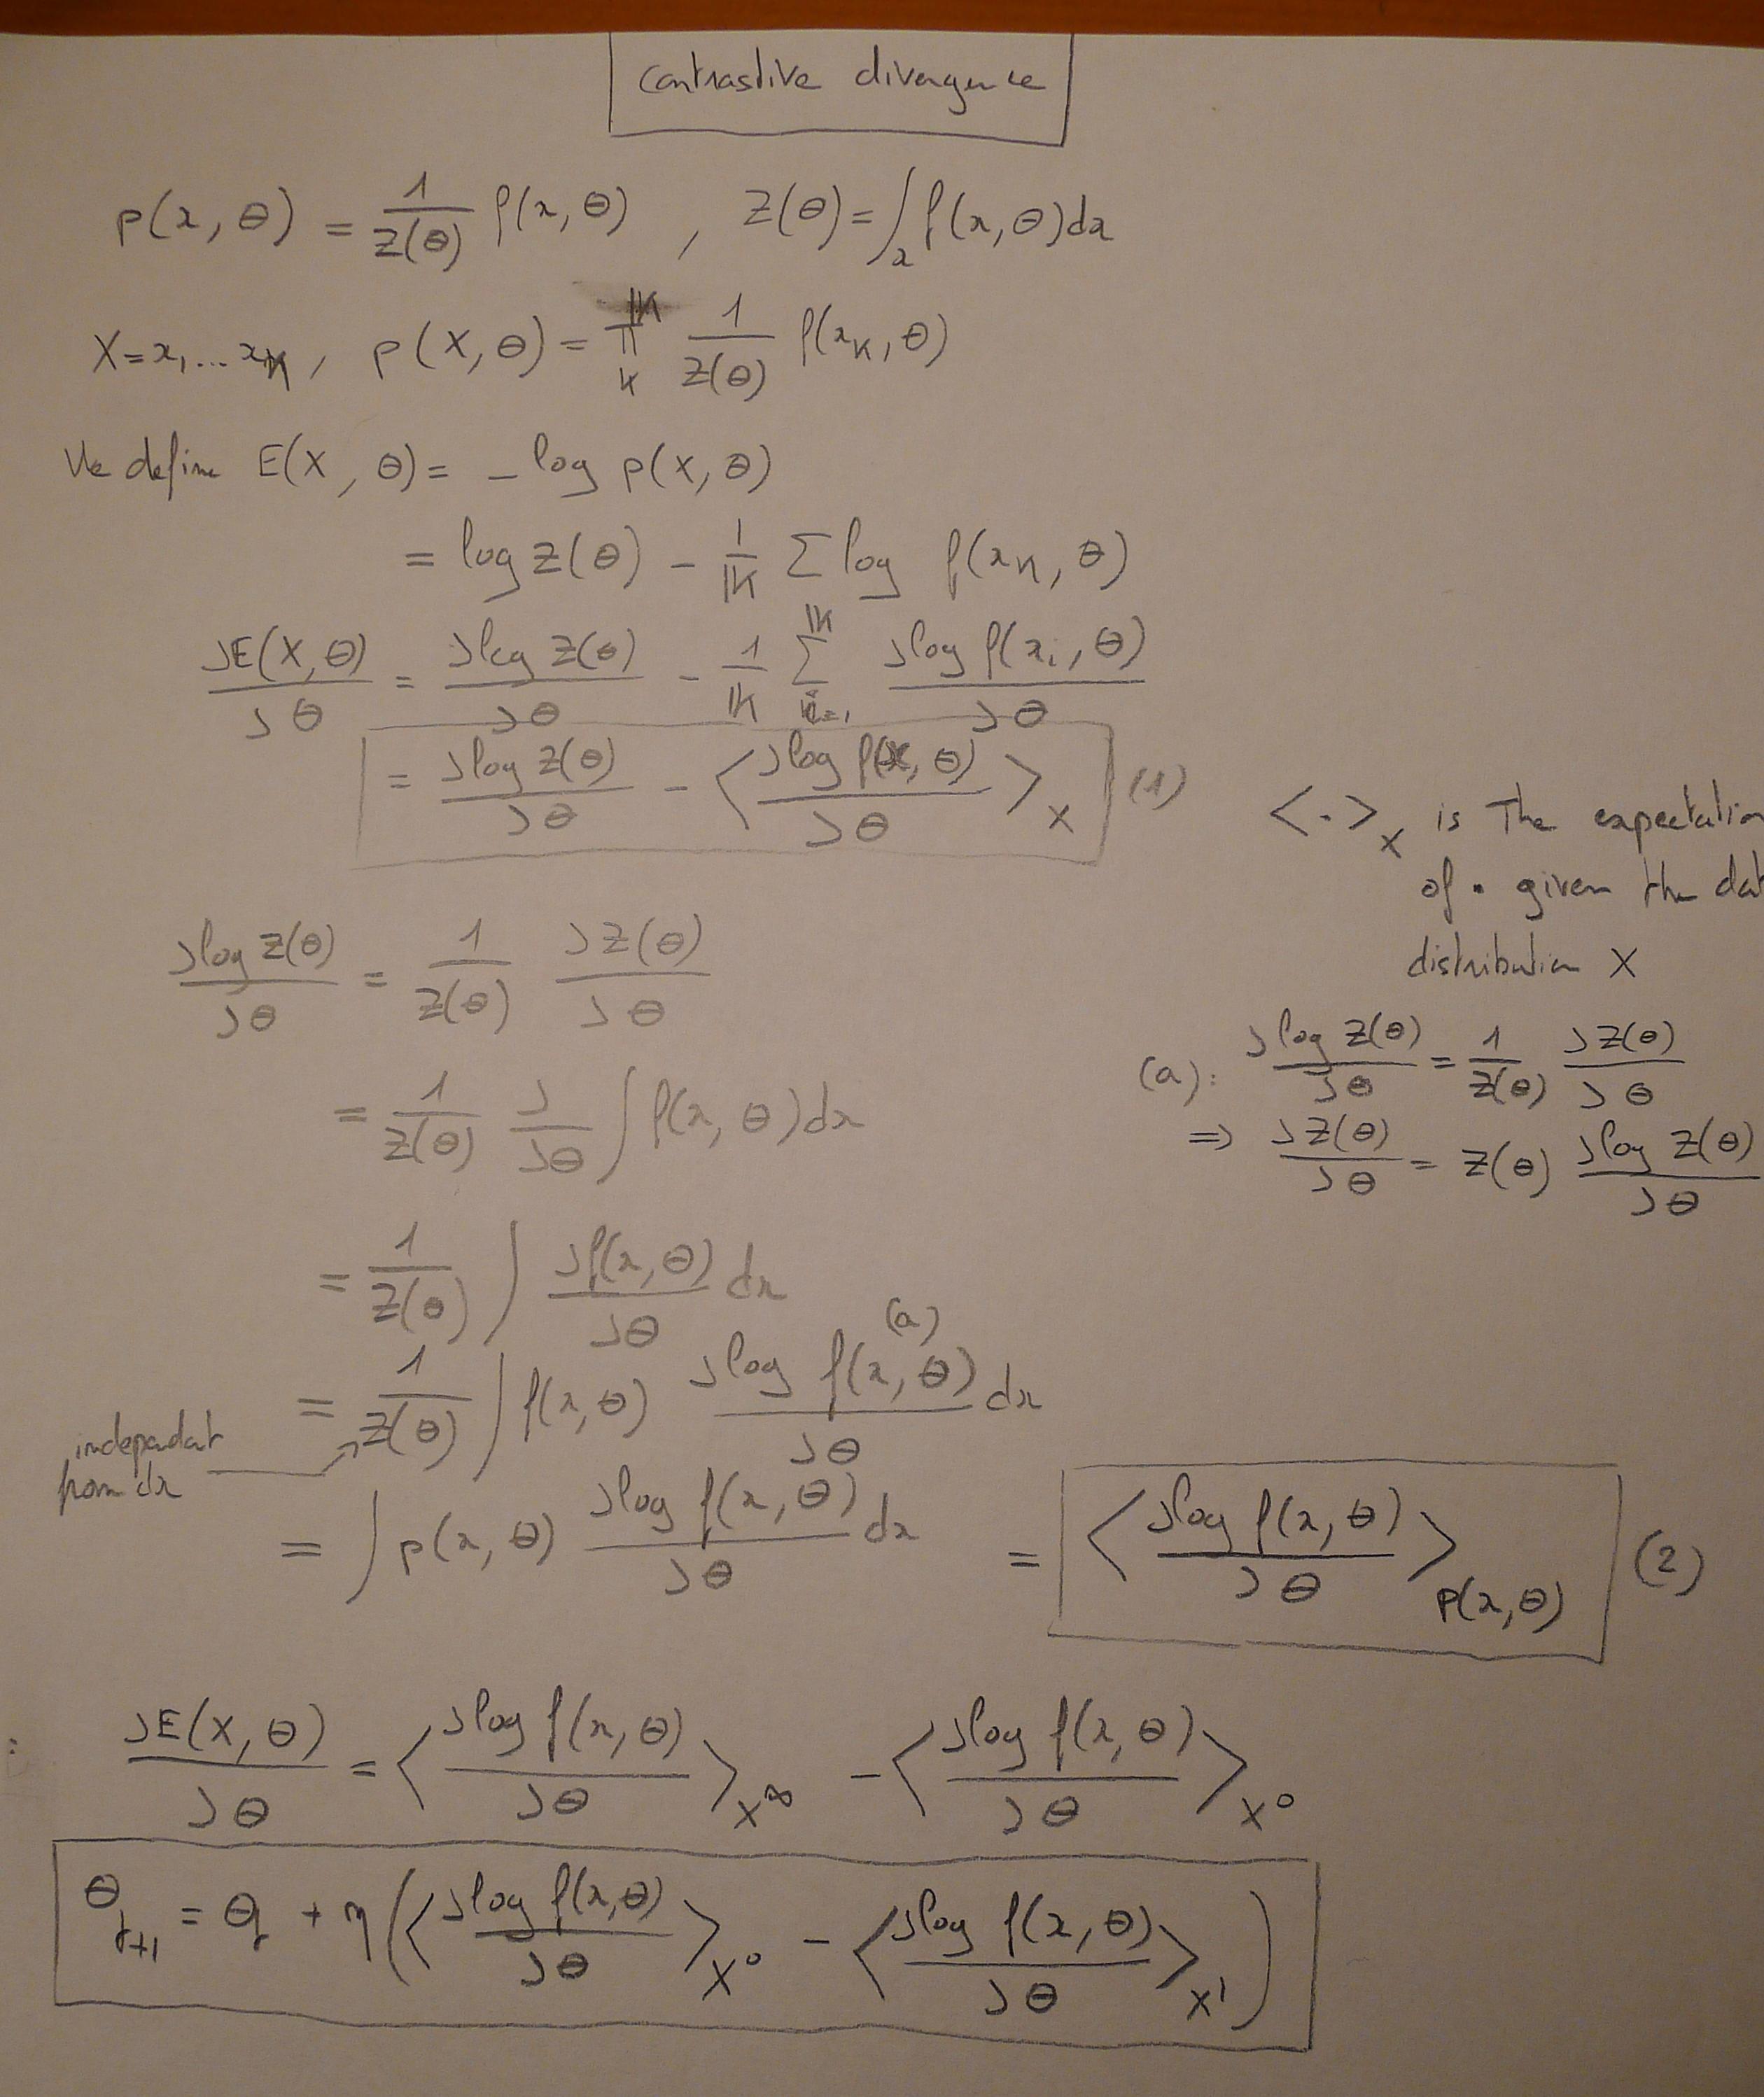 Contrastive divergence
p(x, θ) = 1/Z(θ) f(x, θ) , Z(θ) = ∫_x f(x, θ) dx
X = x₁ ... x_K , p(X, θ) = ∏_k^K 1/Z(θ) f(x_k, θ)
We define E(X, θ) = - log p(X, θ)
= log Z(θ) - 1/K Σ log f(x_k, θ)
∂E(X, θ)/∂θ = ∂log Z(θ)/∂θ - 1/K Σ_{i=1}^K ∂log f(x_i, θ)/∂θ
= ∂log Z(θ)/∂θ - < ∂log f(x, θ)/∂θ >_X (1)
< . >_X is The expectation
of . given the dat
distribution X
∂log Z(θ)/∂θ = 1/Z(θ) ∂Z(θ)/∂θ
= 1/Z(θ) ∂/∂θ ∫ f(x, θ) dx
(a): ∂log Z(θ)/∂θ = 1/Z(θ) ∂Z(θ)/∂θ
=> ∂Z(θ)/∂θ = Z(θ) ∂log Z(θ)/∂θ
= 1/Z(θ) ∫ ∂f(x, θ)/∂θ dx
(a)
= 1/Z(θ) ∫ f(x, θ) ∂log f(x, θ)/∂θ dx
independat
from dx
= ∫ p(x, θ) ∂log f(x, θ)/∂θ dx = < ∂log f(x, θ)/∂θ >_p(x, θ) (2)
: ∂E(X, θ)/∂θ = < ∂log f(x, θ)/∂θ >_X^∞ - < ∂log f(x, θ)/∂θ >_X^0
θ_{t+1} = θ_t + η ( < ∂log f(x, θ)/∂θ >_X^0 - < ∂log f(x, θ)/∂θ >_X^1 )